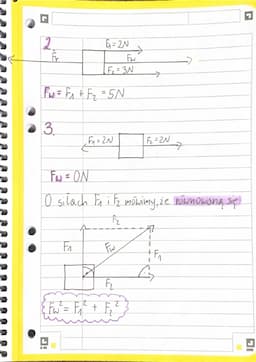 2.
F₁=2N
Fr Fw
F₂=3N
Fw = F₁ + F₂ = 5N
3.
F₁=2N F₂=2N
Fw = 0N
O siłach F₁ i F₂ mówimy, że równoważą się
F₂
F₁ Fw F₁
F₂
Fw² = F₁² + F₂²